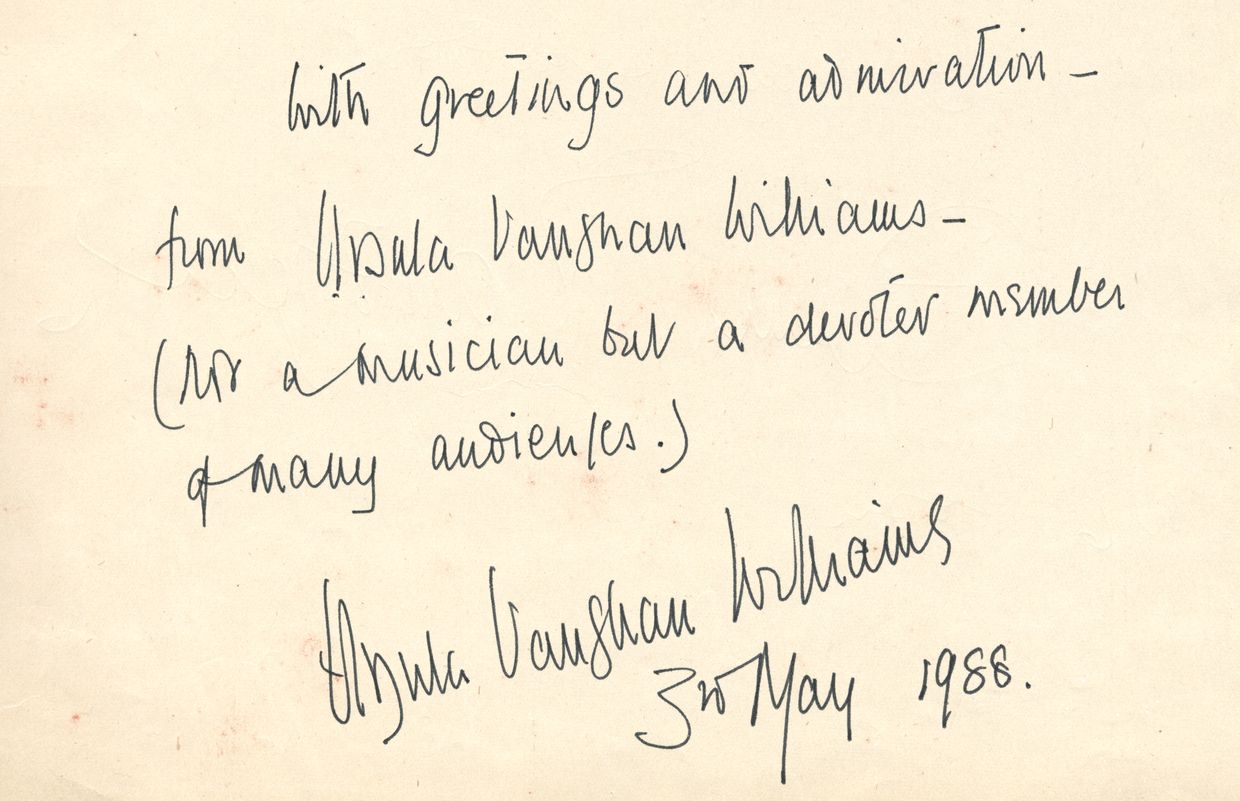 With greetings and admiration –
from Ursula Vaughan Williams –
(not a musician but a devoted member
of many audiences.)
Ursula Vaughan Williams
3rd May 1988.